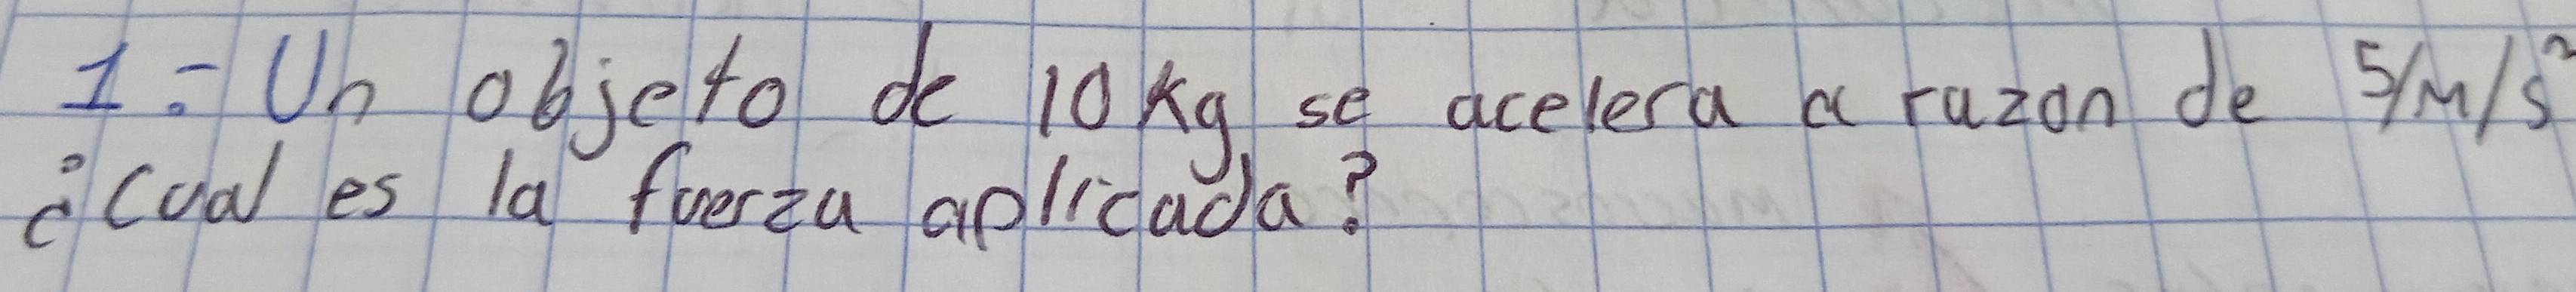 1:- Un objeto de 10 kg se acelera a razon de 5/M/s²
¿cual es la fuerza aplicada?